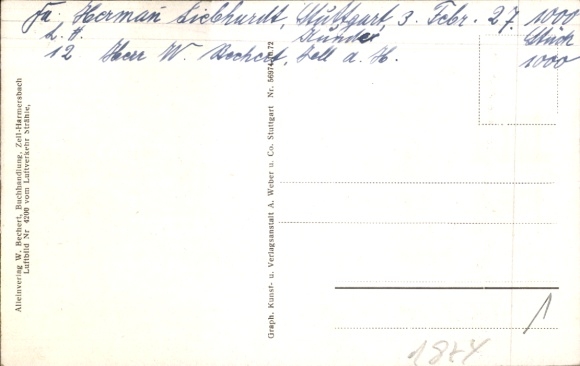 Fa. Herman Liebhardt, Stuttgart, 3. Febr. 27. 1000
L.H. Kunde Stück
12 Herr W. Bechert, Zell a. H. 1000
Alleinverlag W. Bechert, Buchhandlung, Zell-Harmersbach
Luftbild Nr 4200 vom Luftverkehr Strähle,
Graph. Kunst- u. Verlagsanstalt A. Weber u. Co. Stuttgart Nr. 56974